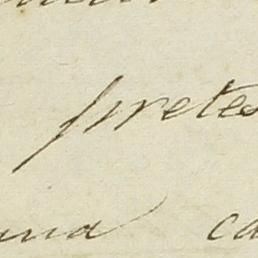 pretes
una ca